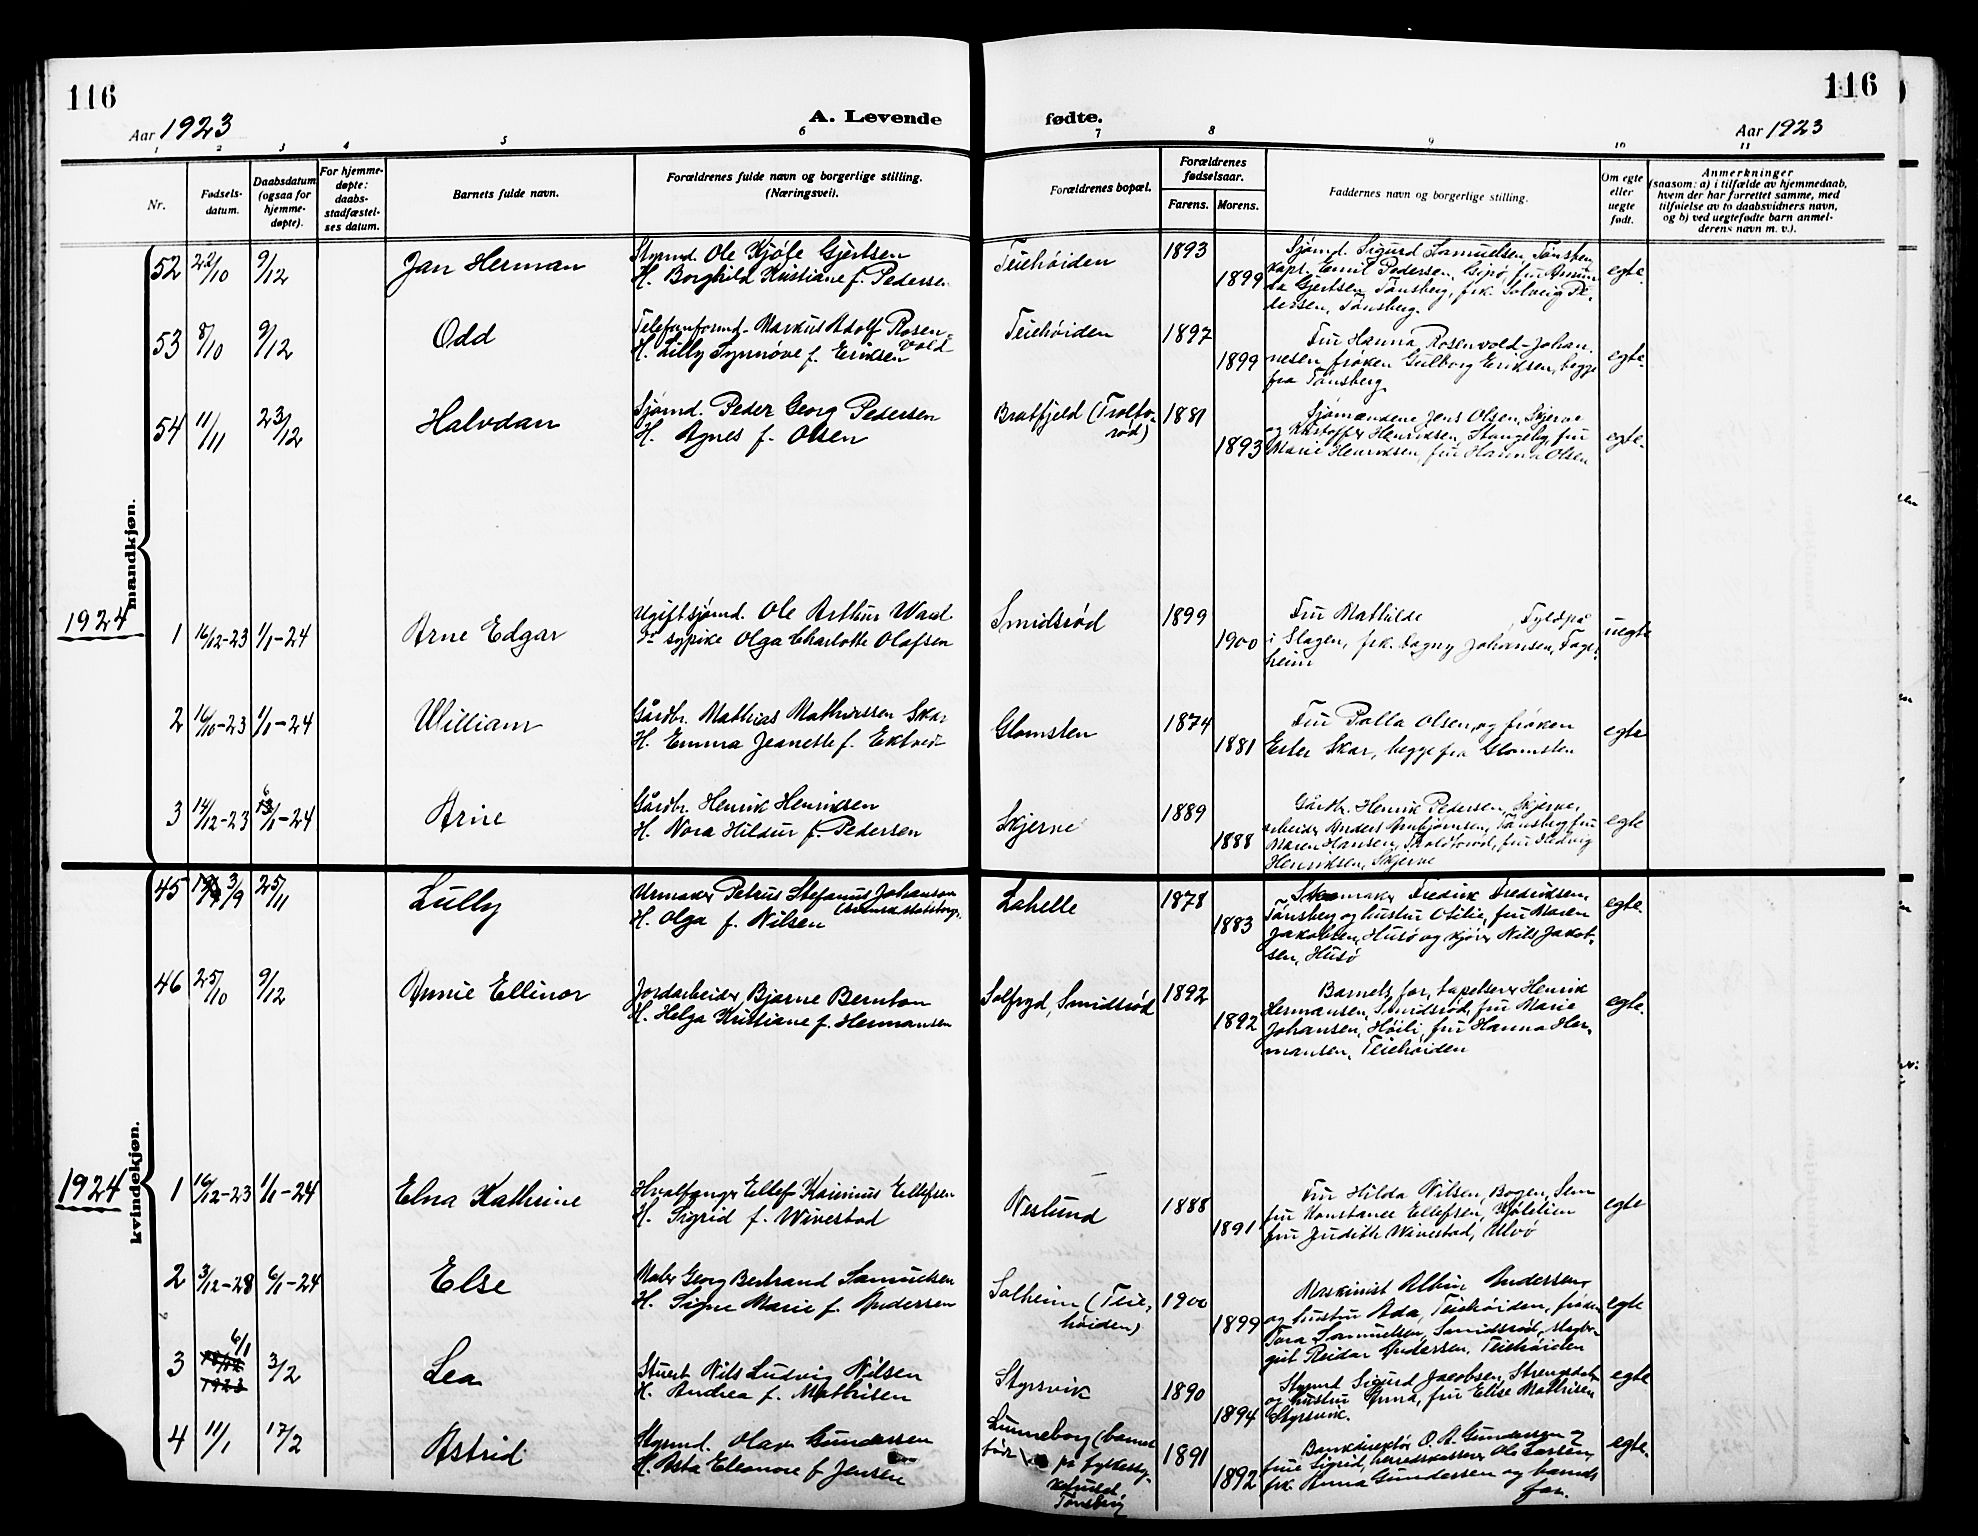 116
Aar 1923
A. Levende
fødte.
116
Aar 1923
1 2 3 4 5 6 7 8 9 10 11
Nr.
Fødsels-
datum.
Daabsdatum
(ogsaa for
hjemme-
døpte).
For hjemme-
døpte:
daabs-
stadfæstel-
ses datum.
Barnets fulde navn.
Forældrenes fulde navn og borgerlige stilling.
(Næringsvei).
Forældrenes bopæl.
Forældrenes
fødselsaar.
Farens. Morens.
Faddernes navn og borgerlige stilling.
Om egte
eller
uegte
født.
Anmerkninger
(saasom: a) i tilfælde av hjemmedaab,
hvem der har forrettet samme, med
tilføielse av to daabsvidners navn,
og b) ved uegtefødte barn anmel-
derens navn m. v.).
mandkjøn.
52 22/10 9/12 Jan Herman
Styrmd. Ole Kjøle Gjertsen
H. Borghild Kristiane f. Pedersen
Teiehøiden
1893
1899
Sjømd. Sigurd Samuelsen, Tønsberg
Kapt. Emil Pedersen, Gipø, fru Amun-
da Gjertsen, Tønsberg, frk. Solveig Pe-
dersen, Tønsberg.
egte.
53 8/10 9/12 Odd
Telefonformd. Markus Adolf Rosen-
vold
H. Lilly Synnøve f. Eriksen
Teiehøiden
1897
1899
Fru Hanna Rosenvold-Johan-
nesen, frøken Gulborg Eriksen, begge
fra Tønsberg
egte.
54 11/11 23/12 Halvdan
Sjømd. Peder Georg Pedersen
H. Agnes f. Olsen
Bratfjeld (Trolbo-
rød)
1881
1893
Sjømændene Jens Olsen, Skjerve
og Kristoffer Henriksen, Stangeby, fru
Marie Henriksen, fru Hanna Olsen
egte.
1924
1 16/12-23 1/1-24 Arne Edgar
Ugift sjømd. Ole Arthur Waal
sypike Olga Charlotte Olafsen
Smidsrød
1899
1900
Fru Mathilde Fyldpå
i Slagen, frk. Dagny Johansen, Fager-
heim
uegte
2 16/10-23 1/1-24 William
Gårdbr. Mathias Mathissen Skar
H. Emma Jeanette f. Ektvedt
Glomsten
1874
1881
Fru Palla Olsen, og frøken
Ester Skar, begge fra Glomsten
egte
3 14/12-23 6/1-24 Arne
Gårdbr. Henrik Henriksen
H. Nora Hildur f. Pedersen
Skjerve
1889
1888
Gårdbr. Henrik Pedersen, Skjerve,
arbeider Anders Arnbjørnsen, Tønsberg, fru
Maren Hansen, fru Hedvig
Henriksen, Skjerve
egte
kvindekjøn.
45 3/9 25/11 Lully
Urmaker Petrus Stefanus Johanson
(svensk statsborg.
H. Olga f. Nilsen
Lahelle
1878
1883
Skomaker Fredrik Fredriksen,
Tønsberg og hustru Otilie, fru Maren
Jakobsen, Husø og kjører Nils Jakob-
sen, Husø
egte.
46 25/10 9/12 Annie Ellinor
Jordarbeider Bjarne Berntson
H. Helga Kristiane f. Hermansen
Solfryd, Smidsrød
1892
1892
Barnets far, tapetserer Henrik
Hermansen, Smidsrød, fru Marie
Johansen, Høili, fru Hanna Her-
mansen, Teiehøiden
egte.
1924
1 16/12-23 1/1-24 Elna Kathrine
Hvalfanger Ellef Kasinius Ellefsen
H. Sigrid f. Wivestad
Neslund
1888
1891
Fru Hilda Nilsen, Bogen, Sem
fru Konstance Ellefsen, Kjølelien
fru Judith Wivestad, Ulvø
egte
2 3/12-28 6/1-24 Else
Maler Georg Bertrand Samuelsen
H. Signe Marie f. Andersen
Solheim (Teie-
høiden)
1900
1899
Maskinist Albin Andersen,
og hustru Ada, Teiehøiden, frøken
Tora Samuelsen, Smidsrød,
gut Reidar Andersen, Teiehøiden
egte
3 6/1 3/2 Lea
Stuert Nils Ludvig Nilsen
H. Andrea f. Mathisen
Styrsvik
1890
1894
Styrmd. Sigurd Jacobsen,
og hustru Anna, fru Elise Mathisen
Styrsvik.
egte
4 11/1 17/2 Astrid
Styrmd. Olav Gundersen
H. Asta Eleonore f. Jensen
Lunneborg (barnet
født på fylkessy-
kehuset
Tønsberg
1891
1892
Bankdirektør O. A. Gundersen og
frue Sigrid, herredskasserer Ole Larsen,
frk. Anna Gundersen og barnets
far.
egte.